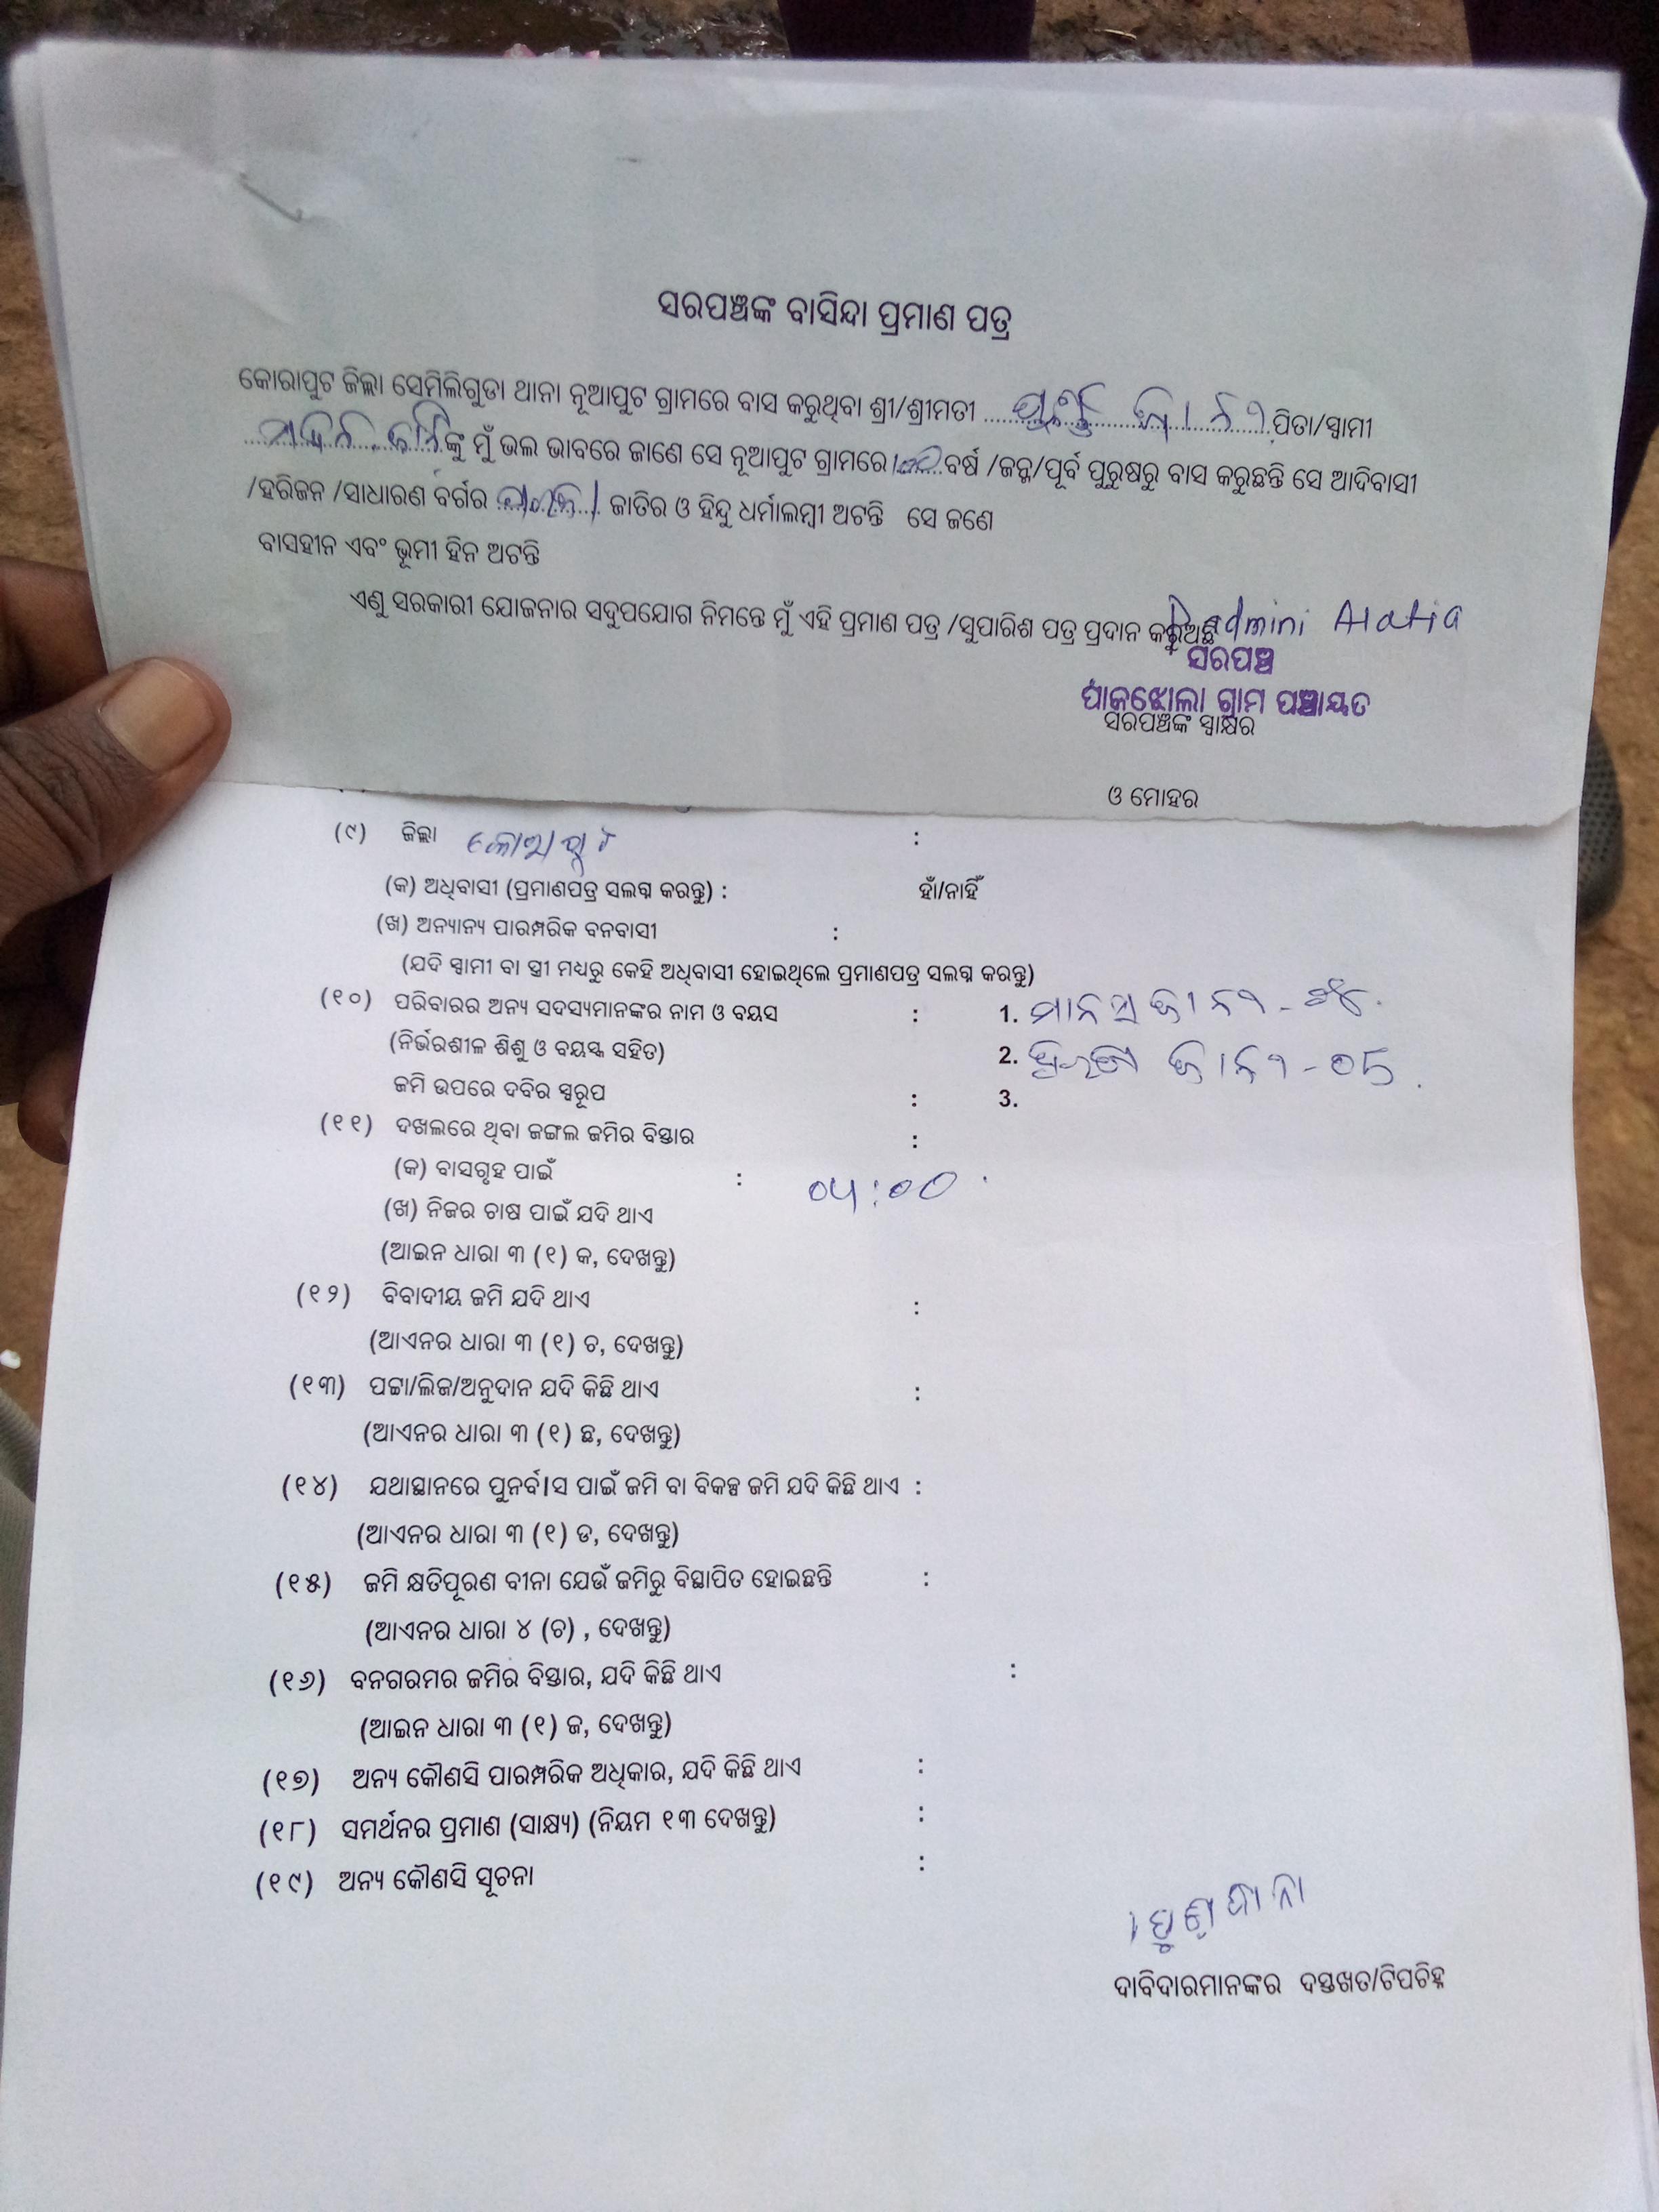 ସରପଞ୍ଚଙ୍କ ବାସିନ୍ଦା ପ୍ରମାଣ ପତ୍ର
କୋରାପୁଟ ଜିଲ୍ଲା ସେମିଲିଗୁଡା ଥାନା ନୂଆପୁଟ ଗ୍ରାମରେ ବାସ କରୁଥିବା ଶ୍ରୀ/ଶ୍ରୀମତୀ ପିତା/ସ୍ୱାମୀ
ଙ୍କୁ ମୁଁ ଭଲ ଭାବରେ ଜାଣେ ସେ ନୂଆପୁଟ ଗ୍ରାମରେ ବର୍ଷ /ଜନ୍ମ/ପୂର୍ବ ପୁରୁଷରୁ ବାସ କରୁଛନ୍ତି ସେ ଆଦିବାସୀ
/ହରିଜନ /ସାଧାରଣ ବର୍ଗର ଜାତିର ଓ ହିନ୍ଦୁ ଧର୍ମାଲମ୍ବୀ ଅଟନ୍ତି ସେ ଜଣେ
ବାସହୀନ ଏବଂ ଭୂମୀ ହିନ ଅଟନ୍ତି
ଏଣୁ ସରକାରୀ ଯୋଜନାର ସଦୁପଯୋଗ ନିମନ୍ତେ ମୁଁ ଏହି ପ୍ରମାଣ ପତ୍ର /ସୁପାରିଶ ପତ୍ର ପ୍ରଦାନ କରୁଅଛି
Padmini
ସରପଞ୍ଚ
ପାଁକଝୋଲା ଗ୍ରାମ ପଞ୍ଚାୟତ
ସରପଞ୍ଚଙ୍କ ସ୍ୱାକ୍ଷର
ଓ ମୋହର
(୯) ଜିଲ୍ଲା କୋରାପୁଟ :
(କ) ଅଧିବାସୀ (ପ୍ରମାଣପତ୍ର ସଲଗ୍ନ କରନ୍ତୁ) : ହାଁ/ନାହିଁ
(ଖ) ଅନ୍ୟାନ୍ୟ ପାରମ୍ପରିକ ବନବାସୀ :
(ଯଦି ସ୍ୱାମୀ ବା ସ୍ତ୍ରୀ ମଧ୍ୟରୁ କେହି ଅଧିବାସୀ ହୋଇଥିଲେ ପ୍ରମାଣପତ୍ର ସଲଗ୍ନ କରନ୍ତୁ)
(୧୦) ପରିବାରର ଅନ୍ୟ ସଦସ୍ୟମାନଙ୍କର ନାମ ଓ ବୟସ : 1.
(ନିର୍ଭରଶୀଳ ଶିଶୁ ଓ ବୟସ୍କ ସହିତ) 2.
ଜମି ଉପରେ ଦବିର ସ୍ୱରୂପ : 3.
(୧୧) ଦଖଲରେ ଥିବା ଜଙ୍ଗଲ ଜମିର ବିସ୍ତାର :
(କ) ବାସଗୃହ ପାଇଁ : 04:00
(ଖ) ନିଜର ଚାଷ ପାଇଁ ଯଦି ଥାଏ
(ଆଇନ ଧାରା ୩ (୧) କ, ଦେଖନ୍ତୁ)
(୧୨) ବିବାଦୀୟ ଜମି ଯଦି ଥାଏ :
(ଆଏନର ଧାରା ୩ (୧) ଚ, ଦେଖନ୍ତୁ)
(୧୩) ପଟ୍ଟା/ଲିଜ/ଅନୁଦାନ ଯଦି କିଛି ଥାଏ :
(ଆଏନର ଧାରା ୩ (୧) ଛ, ଦେଖନ୍ତୁ)
(୧୪) ଯଥାସ୍ଥାନରେ ପୁନର୍ବାସ ପାଇଁ ଜମି ବା ବିକଳ୍ପ ଜମି ଯଦି କିଛି ଥାଏ :
(ଆଏନର ଧାରା ୩ (୧) ଡ, ଦେଖନ୍ତୁ)
(୧୫) ଜମି କ୍ଷତିପୂରଣ ବୀନା ଯେଉଁ ଜମିରୁ ବିସ୍ଥାପିତ ହୋଇଛନ୍ତି :
(ଆଏନର ଧାରା ୪ (ଚ) , ଦେଖନ୍ତୁ)
(୧୬) ବନଗରମର ଜମିର ବିସ୍ତାର, ଯଦି କିଛି ଥାଏ :
(ଆଇନ ଧାରା ୩ (୧) ଜ, ଦେଖନ୍ତୁ)
(୧୭) ଅନ୍ୟ କୌଣସି ପାରମ୍ପରିକ ଅଧିକାର, ଯଦି କିଛି ଥାଏ :
(୧୮) ସମର୍ଥନର ପ୍ରମାଣ (ସାକ୍ଷ୍ୟ) (ନିୟମ ୧୩ ଦେଖନ୍ତୁ) :
(୧୯) ଅନ୍ୟ କୌଣସି ସୂଚନା :
ଦାବିଦାରମାନଙ୍କର ଦସ୍ତଖତ/ଟିପଚିହ୍ନ